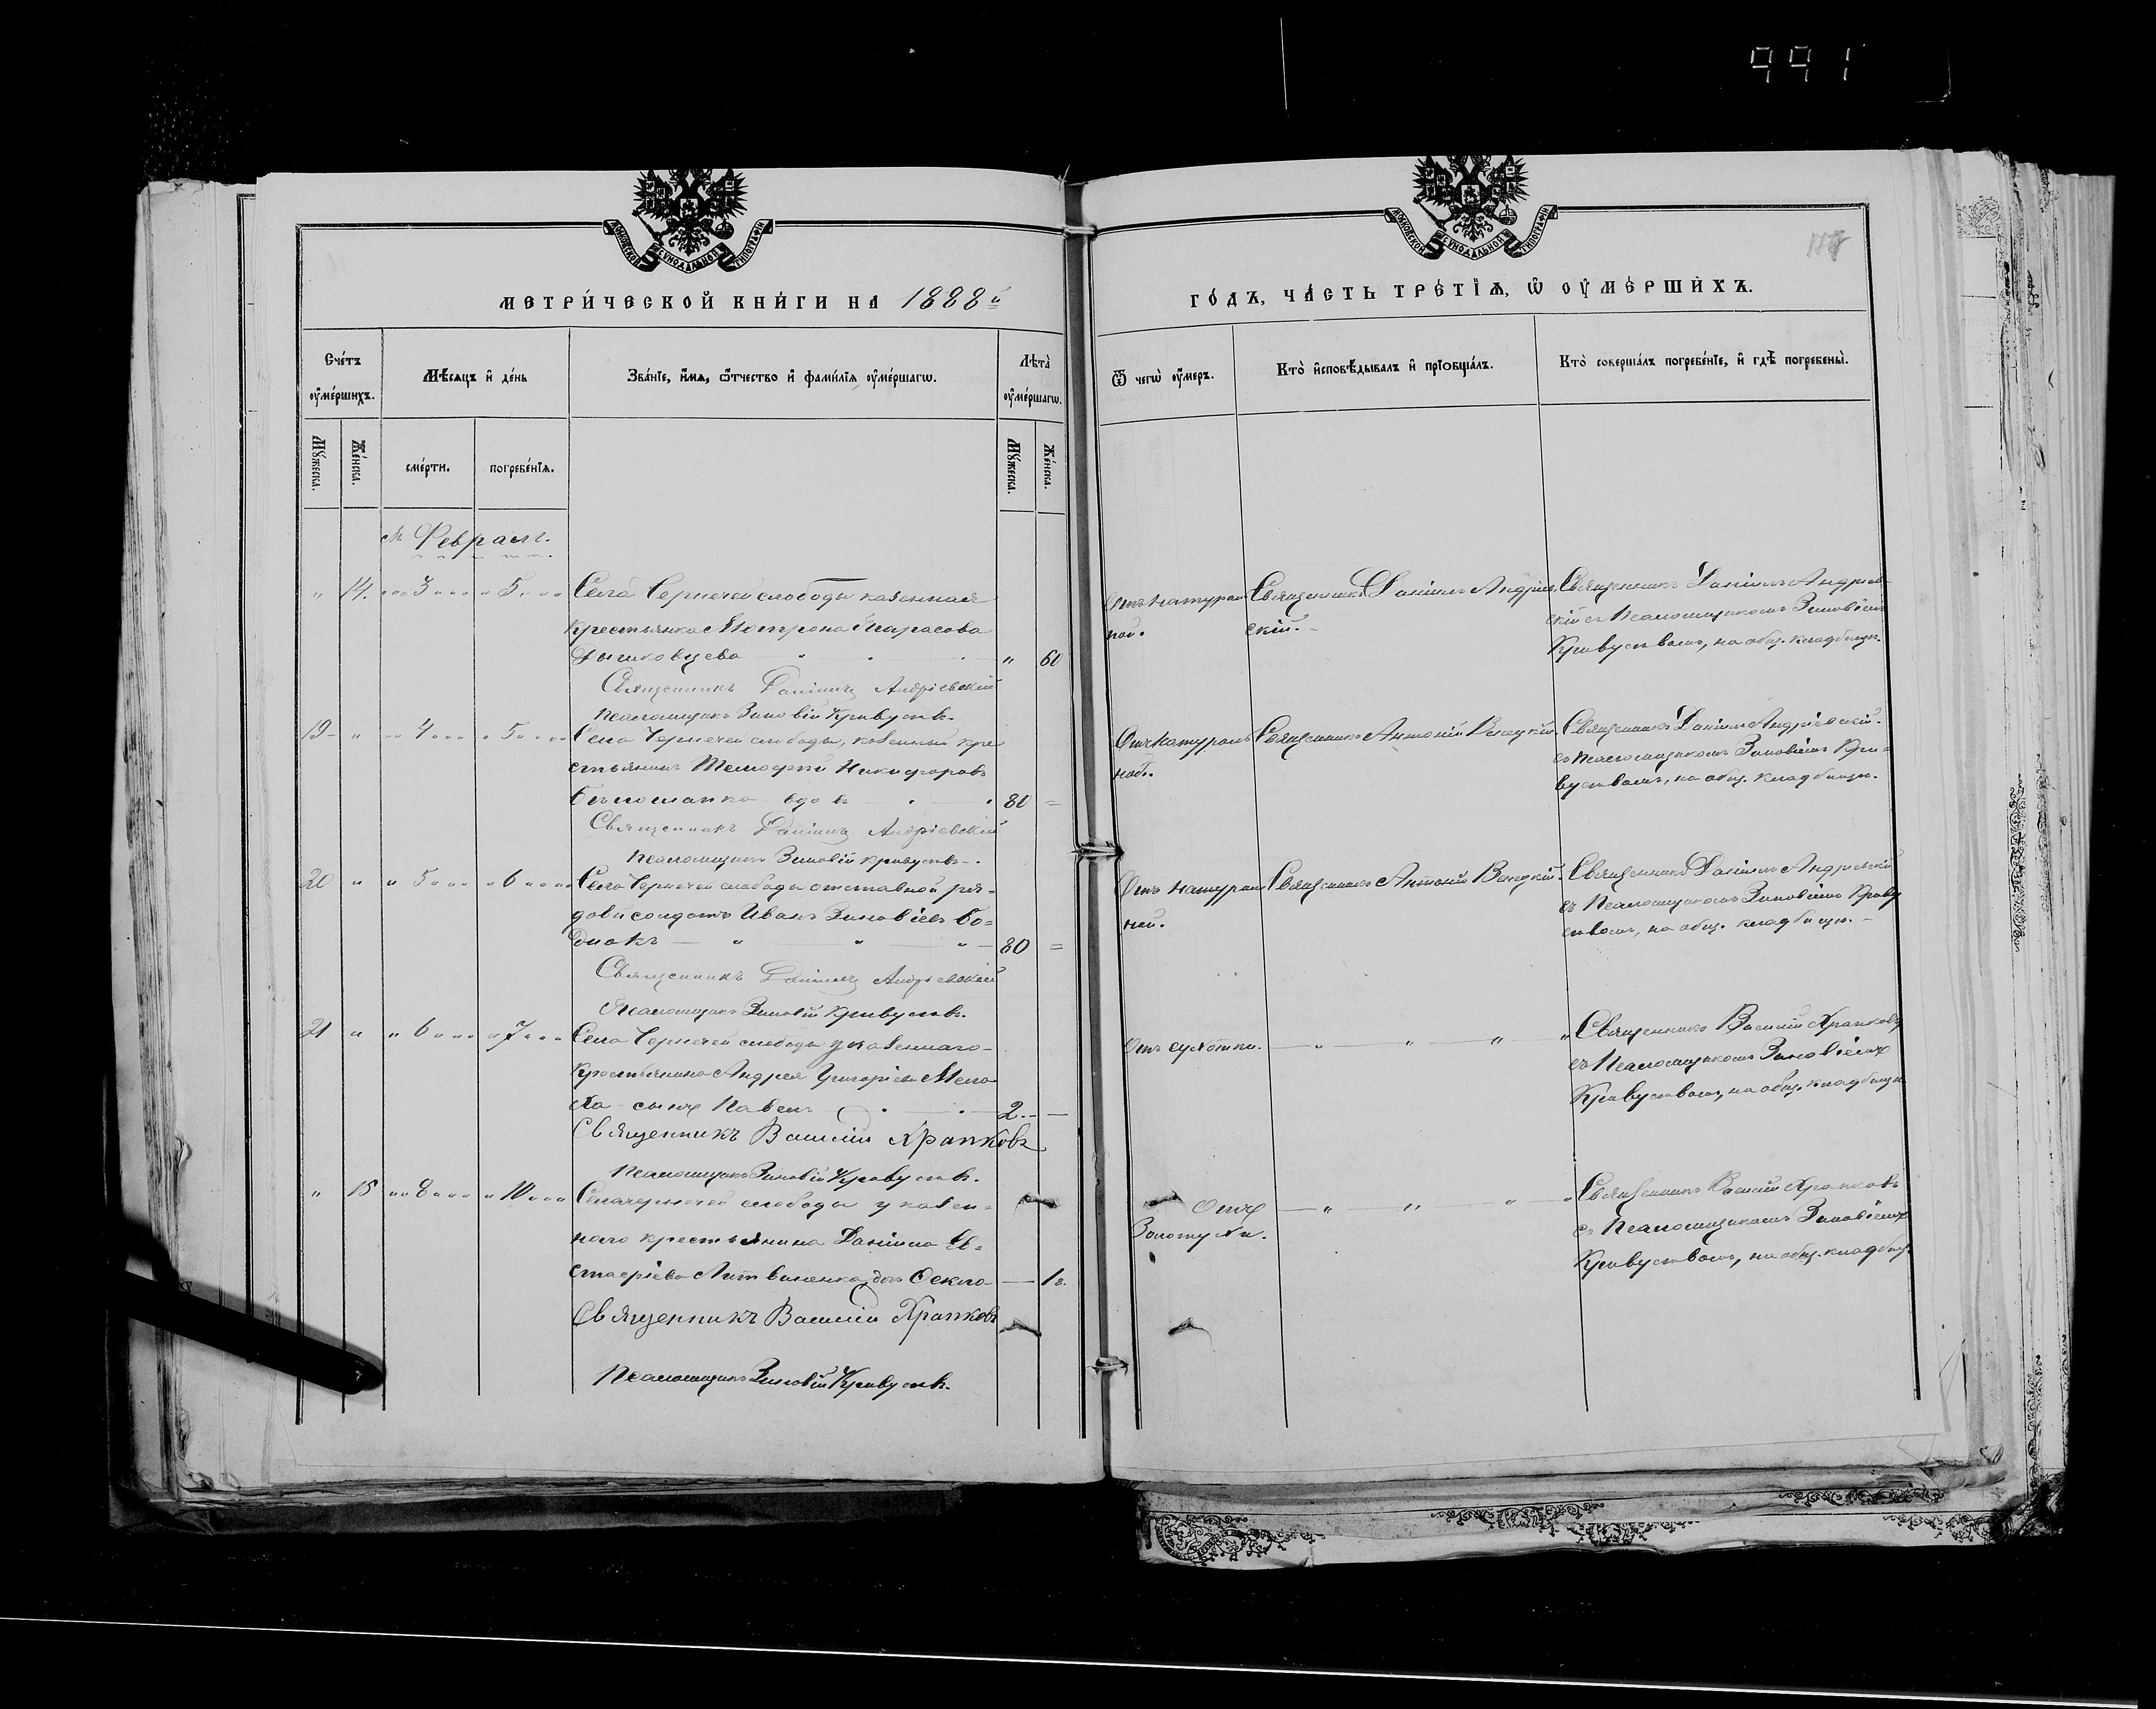 991
МОСКОВСКОЙ СѴНОДАЛЬНОЙ ТИПОГРАФІИ
МОСКОВСКОЙ СѴНОДАЛЬНОЙ ТИПОГРАФІИ
МЕТРИ́ЧЕСКОЙ КНИ́ГИ НА 1888й
ГО́ДЪ, ЧА́СТЬ ТРЕ́ТІѦ, Ѡ҆ ОУ҆МЕ́РШИХЪ.
Сче́тъ оу҆ме́ршихъ.
Мѣ́сяцъ и҆ де́нь
Зва́ніе, и҆́мѧ, ѻ҆́тчество и҆ фами́лїѧ оу҆ме́ршагѡ.
Лѣта̀ оу҆ме́ршагѡ.
Ѿ чегѡ̀ оу҆́меръ.
Кто̀ и҆сповѣ́дывалъ и҆ прїѡбща́лъ.
Кто̀ соверша́лъ погребе́нїе, и҆ гдѣ̀ погребены̀.
Мꙋ́жеска.
Же́нска.
сме́рти.
погребе́нїѧ.
Мꙋ́жеска.
Же́нска.
М. Февраль.
" 14. 3 5 Села Чернечей слободы казенная
крестьянка Мотрона Тарасова
" 60
Священникъ Даніилъ Андріевскій
Псаломщикъ Зиновій Кривустъ.
Отъ натураль
ной.
Священникъ Даніилъ Андріев
скій.
Священникъ Даніилъ Андріев
скій съ Псаломщикомъ Зиновіемъ
Кривустомъ, на общ. кладбищѣ.
19 " 4 5 Села Чернечей слободы, казенный кре
стьянинъ Тимофей Никифоровъ
вдовъ 80 =
Священникъ Даніилъ Андріевскій
Псаломщикъ Зиновій Кривустъ.
Отъ натураль
ной.
Священникъ Антоній Велецкій.
Священникъ Даніилъ Андріевскій
съ Псаломщикомъ Зиновіемъ Кри=
вустомъ, на общ. кладбищѣ.
20 " " 5 6 Села Чернечей слободы отставной ря-
довой солдатъ Иванъ Зиновіевъ Бо=
днакъ 80 =
Священникъ Даніилъ Андріевскій
Псаломщикъ Зиновій Кривустъ.
Отъ натураль
ной.
Священникъ Антоній Велецкій.
Священникъ Даніилъ Андріевскій
съ Псаломщикомъ Зиновіемъ Криву
стомъ, на общ. кладбищѣ.
21 " " 6 7 Села Чернечей слободы у казеннаго
крестьянина Андрея Григоріева
сынъ Павелъ 2.
Священникъ Василій Храпковъ
Псаломщикъ Зиновій Кривустъ.
Отъ сухотки.
Священникъ Василій Храпковъ
съ Псаломщикомъ Зиновіемъ
Кривустомъ, на общ. кладбищѣ
" 15 8 10 Села Чернечей слободы у казен=
наго крестьянина Даніила Ев=
стафіева Литвиненка дочь Фекла 1 г.
Священникъ Василій Храпковъ
Псаломщикъ Зиновій Кривустъ.
Отъ
Золотухи.
Священникъ Василій Храпковъ
съ Псаломщикомъ Зиновіемъ
Кривустомъ, на общ. кладбищ.